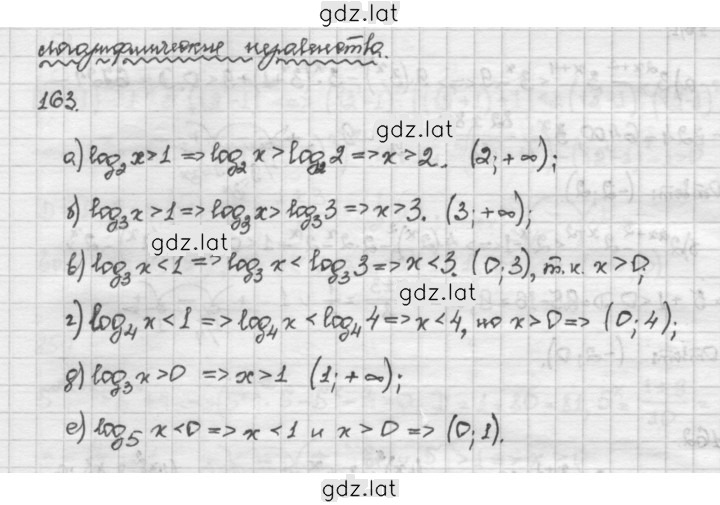 gdz.lat
Логарифмические неравенства.
163.
gdz.lat
а) log₂x>1 => log₂x>log₂2 => x>2. (2;+∞);
б) log₃x>1 => log₃x>log₃3 => x>3. (3;+∞);
gdz.lat
в) log₃x<1 => log₃x<log₃3 => x<3. (0;3), т.к. x>0;
gdz.lat
г) log₄x<1 => log₄x<log₄4 => x<4, но x>0 => (0;4);
д) log₃x>0 => x>1 (1;+∞);
е) log₅x<0 => x<1 и x>0 => (0;1).
gdz.lat